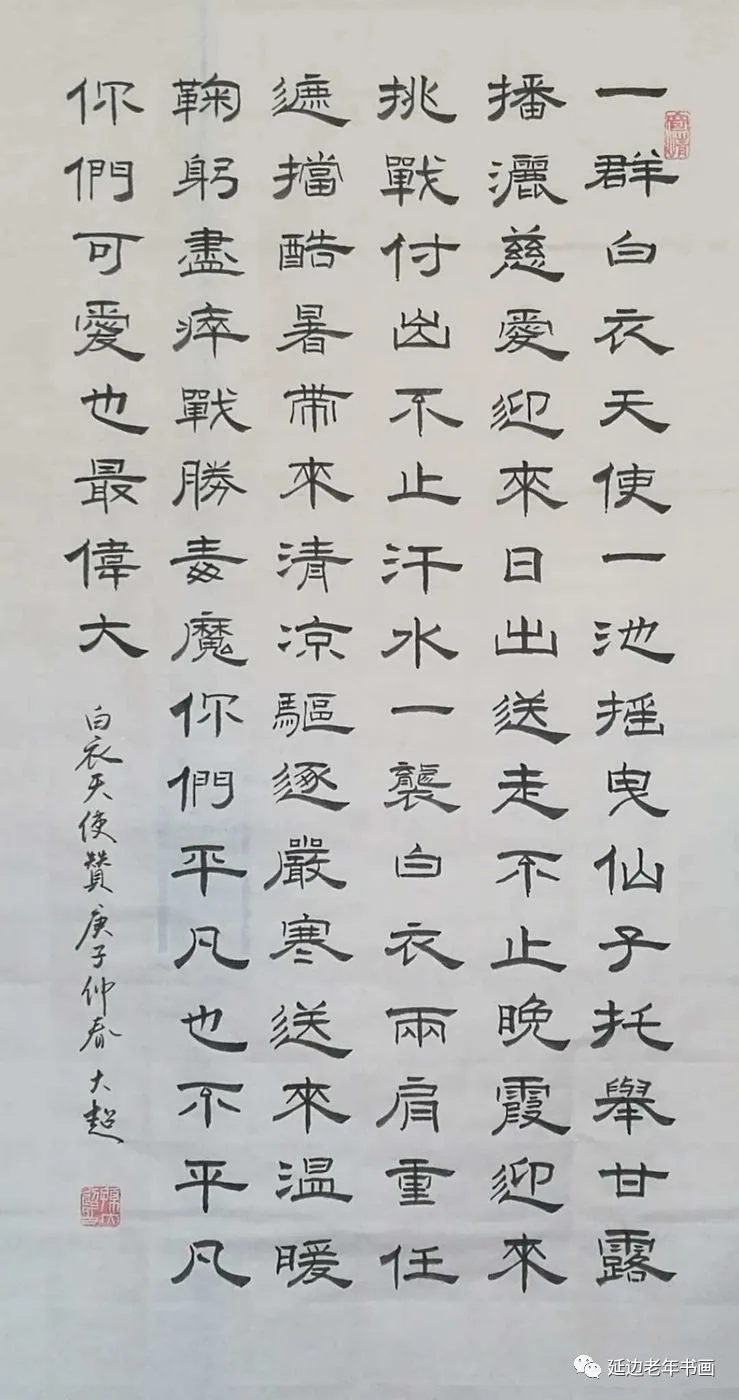 一群白衣天使一池摇曳仙子托舉甘露
播灑慈愛迎來日出送走不止晚霞迎來
挑戰付出不止汗水一襲白衣兩肩重任
遮擋酷暑帶來清凉驅逐嚴寒送來温暖
鞠躬盡瘁戰勝毒魔你們平凡也不平凡
你們可愛也最偉大
白衣天使贊庚子仲春大超
延边老年书画